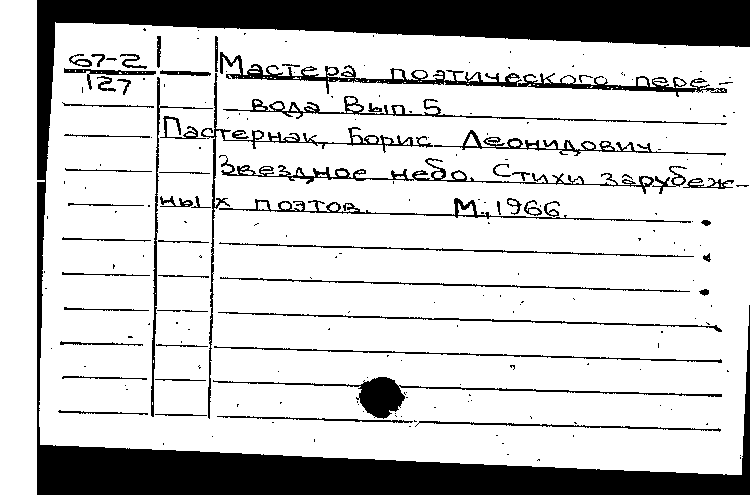 67-2
127
Мастера поэтического пере-
вода Вып. 5
Пастернак, Борис Леонидович.
Звездное небо. Стихи зарубеж-
ных поэтов. М., 1966.